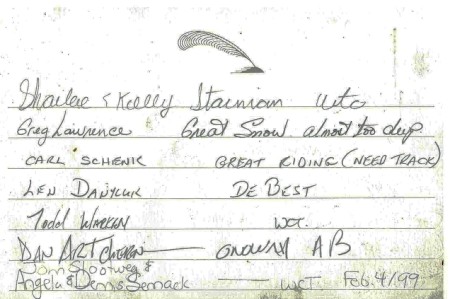 Sharlee & Kelly Stainiom Wto
Greg Lawrence Great Snow almost too deep
CARL SCHENK GREAT RIDING (NEED TRACK)
LEN DANYLUK DE BEST
Todd WCT.
DAN ONOWAY AB
Tom Slootweg &
Angela & Dennis Semack — WCT Feb. 4/99